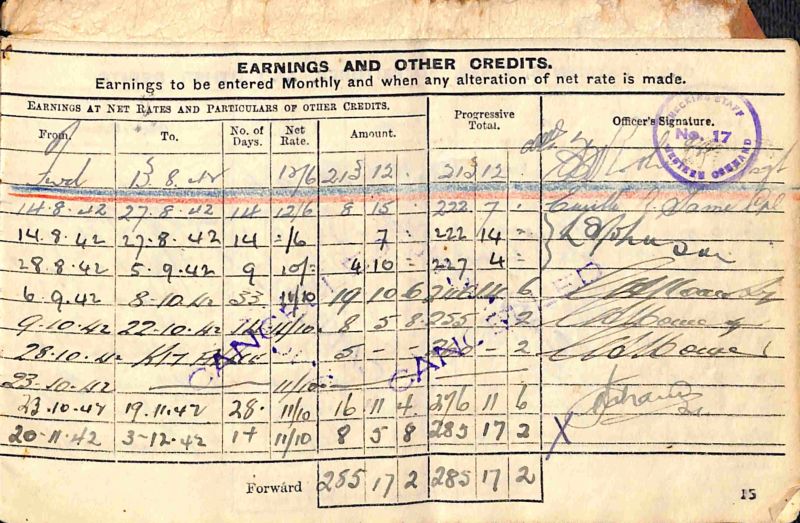 EARNINGS AND OTHER CREDITS.
Earnings to be entered Monthly and when any alteration of net rate is made.
EARNINGS AT NET RATES AND PARTICULARS OF OTHER CREDITS.
From. To. No. of Days. Net Rate. Amount. Progressive Total. Officer's Signature.
CHECKING STAFF No. 17 WESTERN COMMAND
Fwd 13 8 42 12/6 213 12 213 12
14.8.42 27.8.42 14 12/6 8 15 222 7
14.8.42 27.8.42 14 =/6 7 = 222 14 =
28.8.42 5.9.42 9 10/= 4 10 = 227 4 =
6.9.42 8.10.42 33 11/10 19 10 6 246 14 6
9.10.42 22.10.42 14 11/10 8 5 8 255 2
28.10.42 Kit 5 - - 260 2
23.10.42 11/10
23.10.42 19.11.42 28. 11/10 16 11 4 276 11 6
20.11.42 3-12.42 14 11/10 8 5 8 285 17 2
CANCELLED CANCELLED
X
Forward 285 17 2 285 17 2
15